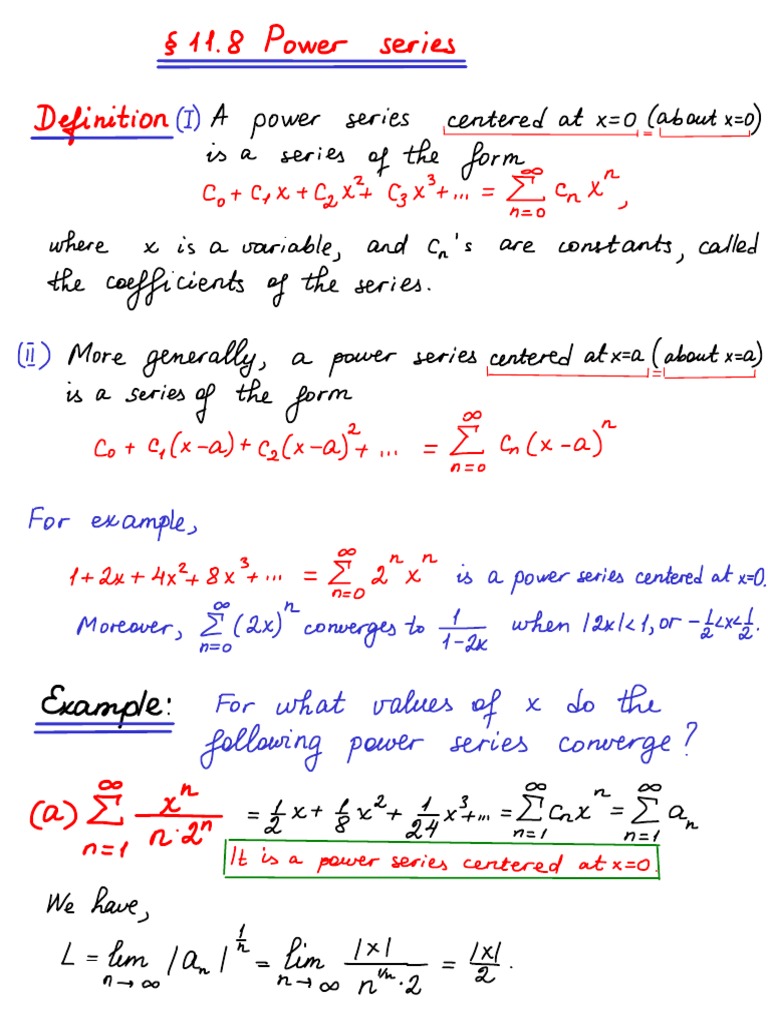 § 11.8 Power series
Definition (I) A power series centered at x=0 (about x=0)
is a series of the form
C₀ + C₁x + C₂x² + C₃x³ + ... = ∑_{n=0}^{∞} cₙxⁿ,
where x is a variable, and cₙ's are constants, called
the coefficients of the series.
(II) More generally, a power series centered at x=a (about x=a)
is a series of the form
C₀ + C₁(x-a) + C₂(x-a)² + ... = ∑_{n=0}^{∞} Cₙ(x-a)ⁿ
For example,
1+2x+4x²+8x³+... = ∑_{n=0}^{∞} 2ⁿxⁿ is a power series centered at x=0.
Moreover, ∑_{n=0}^{∞} (2x)ⁿ converges to 1/(1-2x) when |2x|<1, or -1/2<x<1/2.
Example: For what values of x do the
following power series converge?
(a) ∑_{n=1}^{∞} xⁿ/(n·2ⁿ) = 1/2 x + 1/8 x² + 1/24 x³+... = ∑_{n=1}^{∞} Cₙxⁿ = ∑_{n=1}^{∞} aₙ
It is a power series centered at x=0.
We have,
L = lim_{n→∞} |aₙ|^{1/n} = lim_{n→∞} |x|/(n^{1/n}·2) = |x|/2.